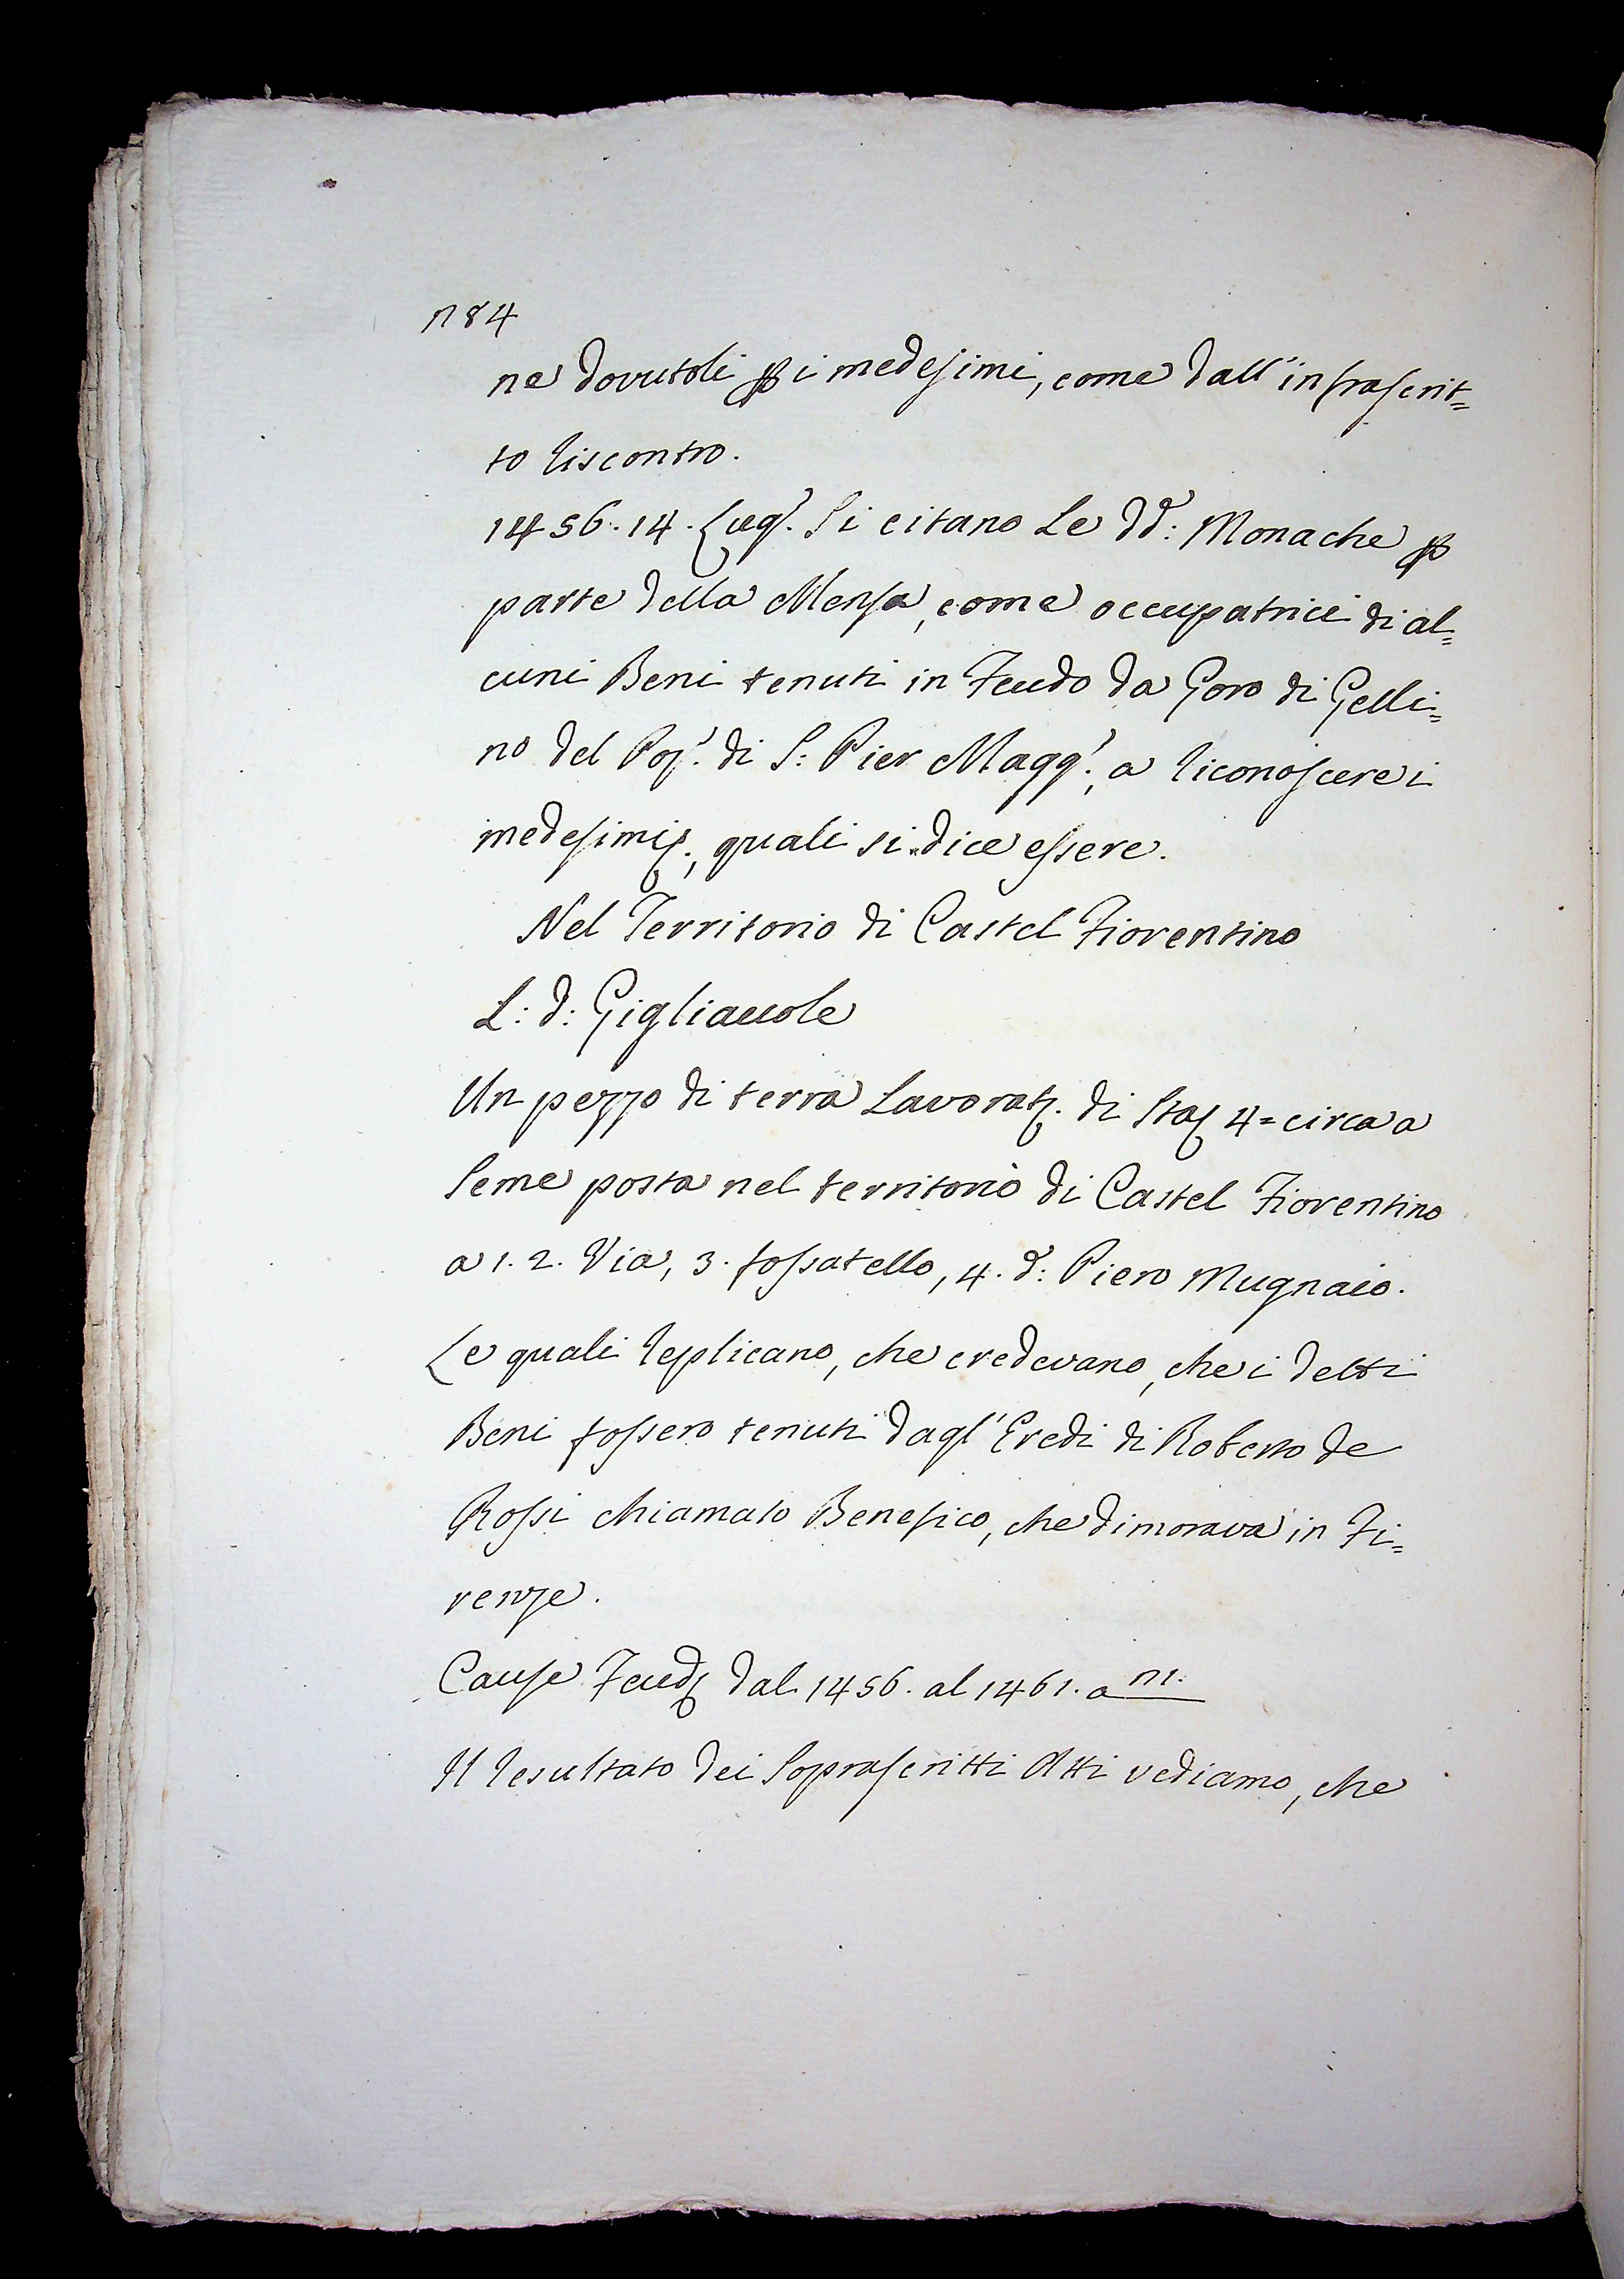 184
ne dovutoli p i medesimi, come dall'infrascrit=
to riscontro.
1456. 14. Lug. Si citano Le dd: Monache p
parte della Mensa, come occupatrici di al=
cuni Beni tenuti in Feudo da Goro di Gelli=
no del Pop. di S: Pier Magg., a riconoscere i
medesimi, quali si dice essere.
Nel Territorio di Castel Fiorentino
L: d: Gigliauole
Un pezzo di terra Lavorat. di Sta 4= circa a
Seme posta nel territorio di Castel Fiorentino
a 1. 2. Via, 3. fossatello, 4. d: Piero Mugnaio.
Le quali replicano, che credevano, che i detti
Beni fossero tenuti dagl'Eredi di Roberto de
Rossi chiamato Benefico, che dimorava in Fi=
renze.
Cause Feud dal 1456. al 1461. a m.
Il resultato dei Soprascritti Atti vediamo, che